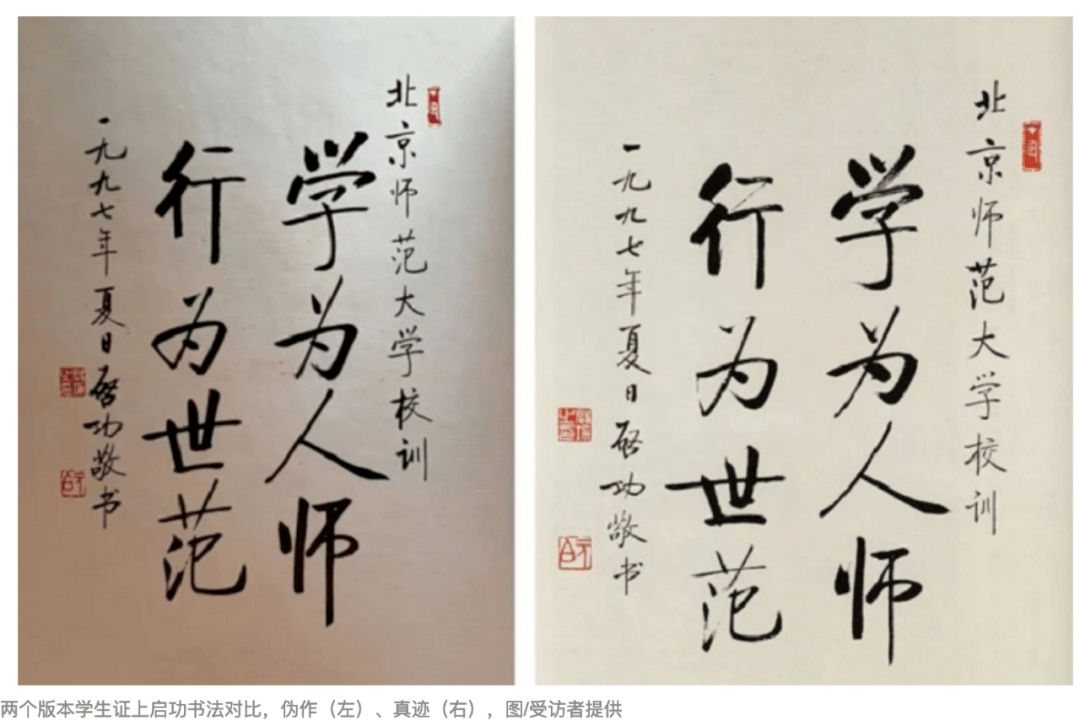 北京师范大学校训
学为人师
行为世范
一九九七年夏日启功敬书
北京师范大学校训
学为人师
行为世范
一九九七年夏日启功敬书
两个版本学生证上启功书法对比，伪作（左）、真迹（右），图/受访者提供